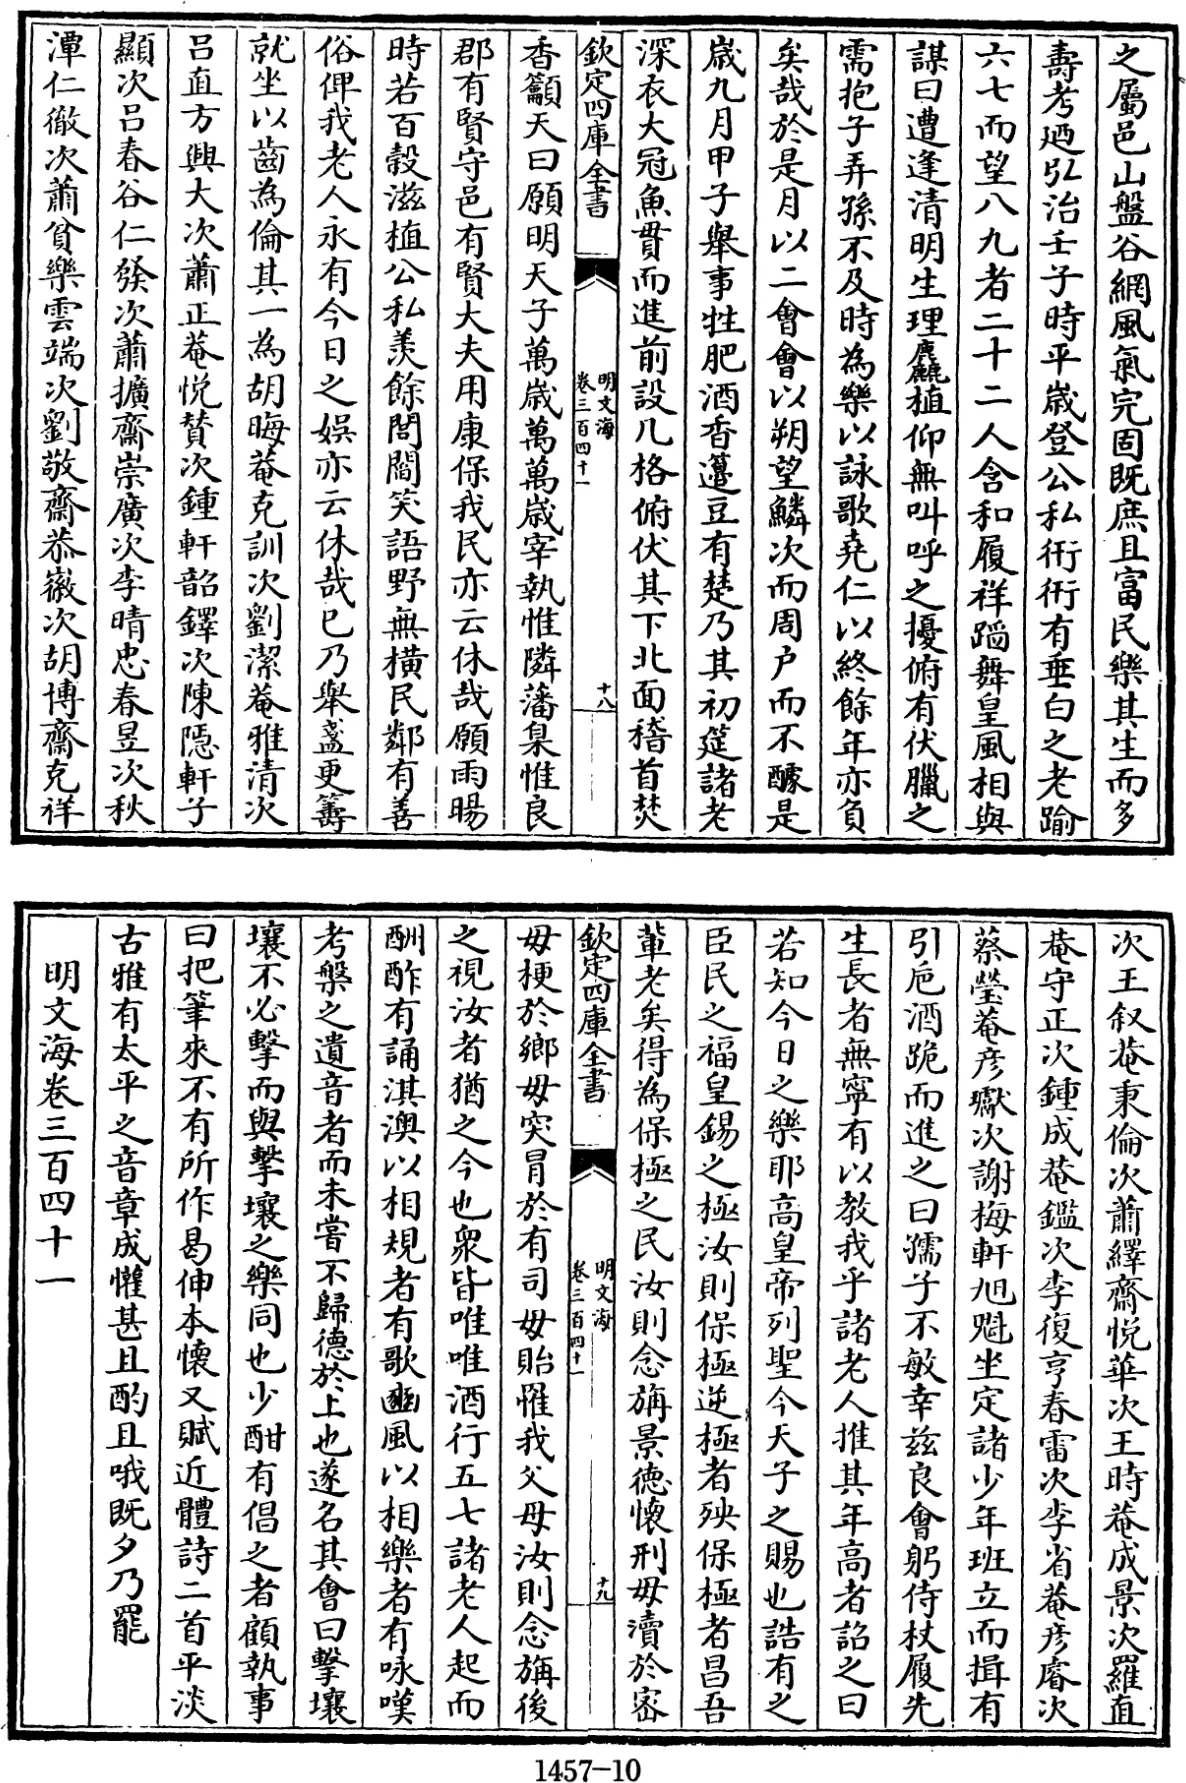 之屬邑山盤谷網風氣完固既庶且富民樂其生而多
壽考廼弘治壬子時平歳登公私衎衎有垂白之老踰
六七而望八九者二十二人含和履祥蹈舞皇風相與
謀曰遭逢清明生理麤植仰無叫呼之擾俯有伏臘之
需抱子弄孫不及時為樂以詠歌堯仁以終餘年亦負
矣哉於是月以二會會以朔望鱗次而周户而不醵是
歳九月甲子舉事牲肥酒香籩豆有楚乃其初筵諸老
深衣大冠魚貫而進前設几格俯伏其下北面稽首焚
欽定四庫全書
明文海
卷三百四十一
十八
香籲天曰願明天子萬歳萬萬歳宰執惟隣藩臬惟良
郡有賢守邑有賢大夫用康保我民亦云休哉願雨暘
時若百穀滋植公私羨餘閭閻笑語野無横民鄰有善
俗俾我老人永有今日之娯亦云休哉已乃舉盞更籌
就坐以齒為倫其一為胡晦菴克訓次劉潔菴雅清次
吕直方興大次蕭正菴悦贊次鍾軒韶鐸次陳隠軒子
顯次吕春谷仁發次蕭擴齋崇廣次李晴忠春昱次秋
潭仁徹次蕭貧樂雲端次劉敬齋恭徽次胡博齋克祥
次王叙菴秉倫次蕭繹齋悦華次王時菴成景次羅直
菴守正次鍾成菴鑑次李復亨春雷次李省菴彦睿次
蔡瑩菴彦巘次謝梅軒旭魁坐定諸少年班立而揖有
引巵酒跪而進之曰孺子不敏幸兹良會躬侍杖履先
生長者無寧有以教我乎諸老人推其年高者詔之曰
若知今日之樂耶高皇帝列聖今天子之賜也誥有之
臣民之福皇錫之極汝則保極逆極者殃保極者昌吾
軰老矣得為保極之民汝則念旃景徳懐刑毋瀆於宻
欽定四庫全書
明文海
卷三百四十一
十九
毋梗於鄉毋突冒於有司毋貽罹我父母汝則念旃後
之視汝者猶之今也衆皆唯唯酒行五七諸老人起而
酬酢有誦淇澳以相規者有歌豳風以相樂者有咏嘆
考槃之遺音者而未嘗不歸徳於上也遂名其會曰擊壤
壤不必擊而與擊壤之樂同也少酣有倡之者顧執事
曰把筆來不有所作曷伸本懐又賦近體詩二首平淡
古雅有太平之音章成懽甚且酌且哦既夕乃罷
明文海卷三百四十一
1457-10